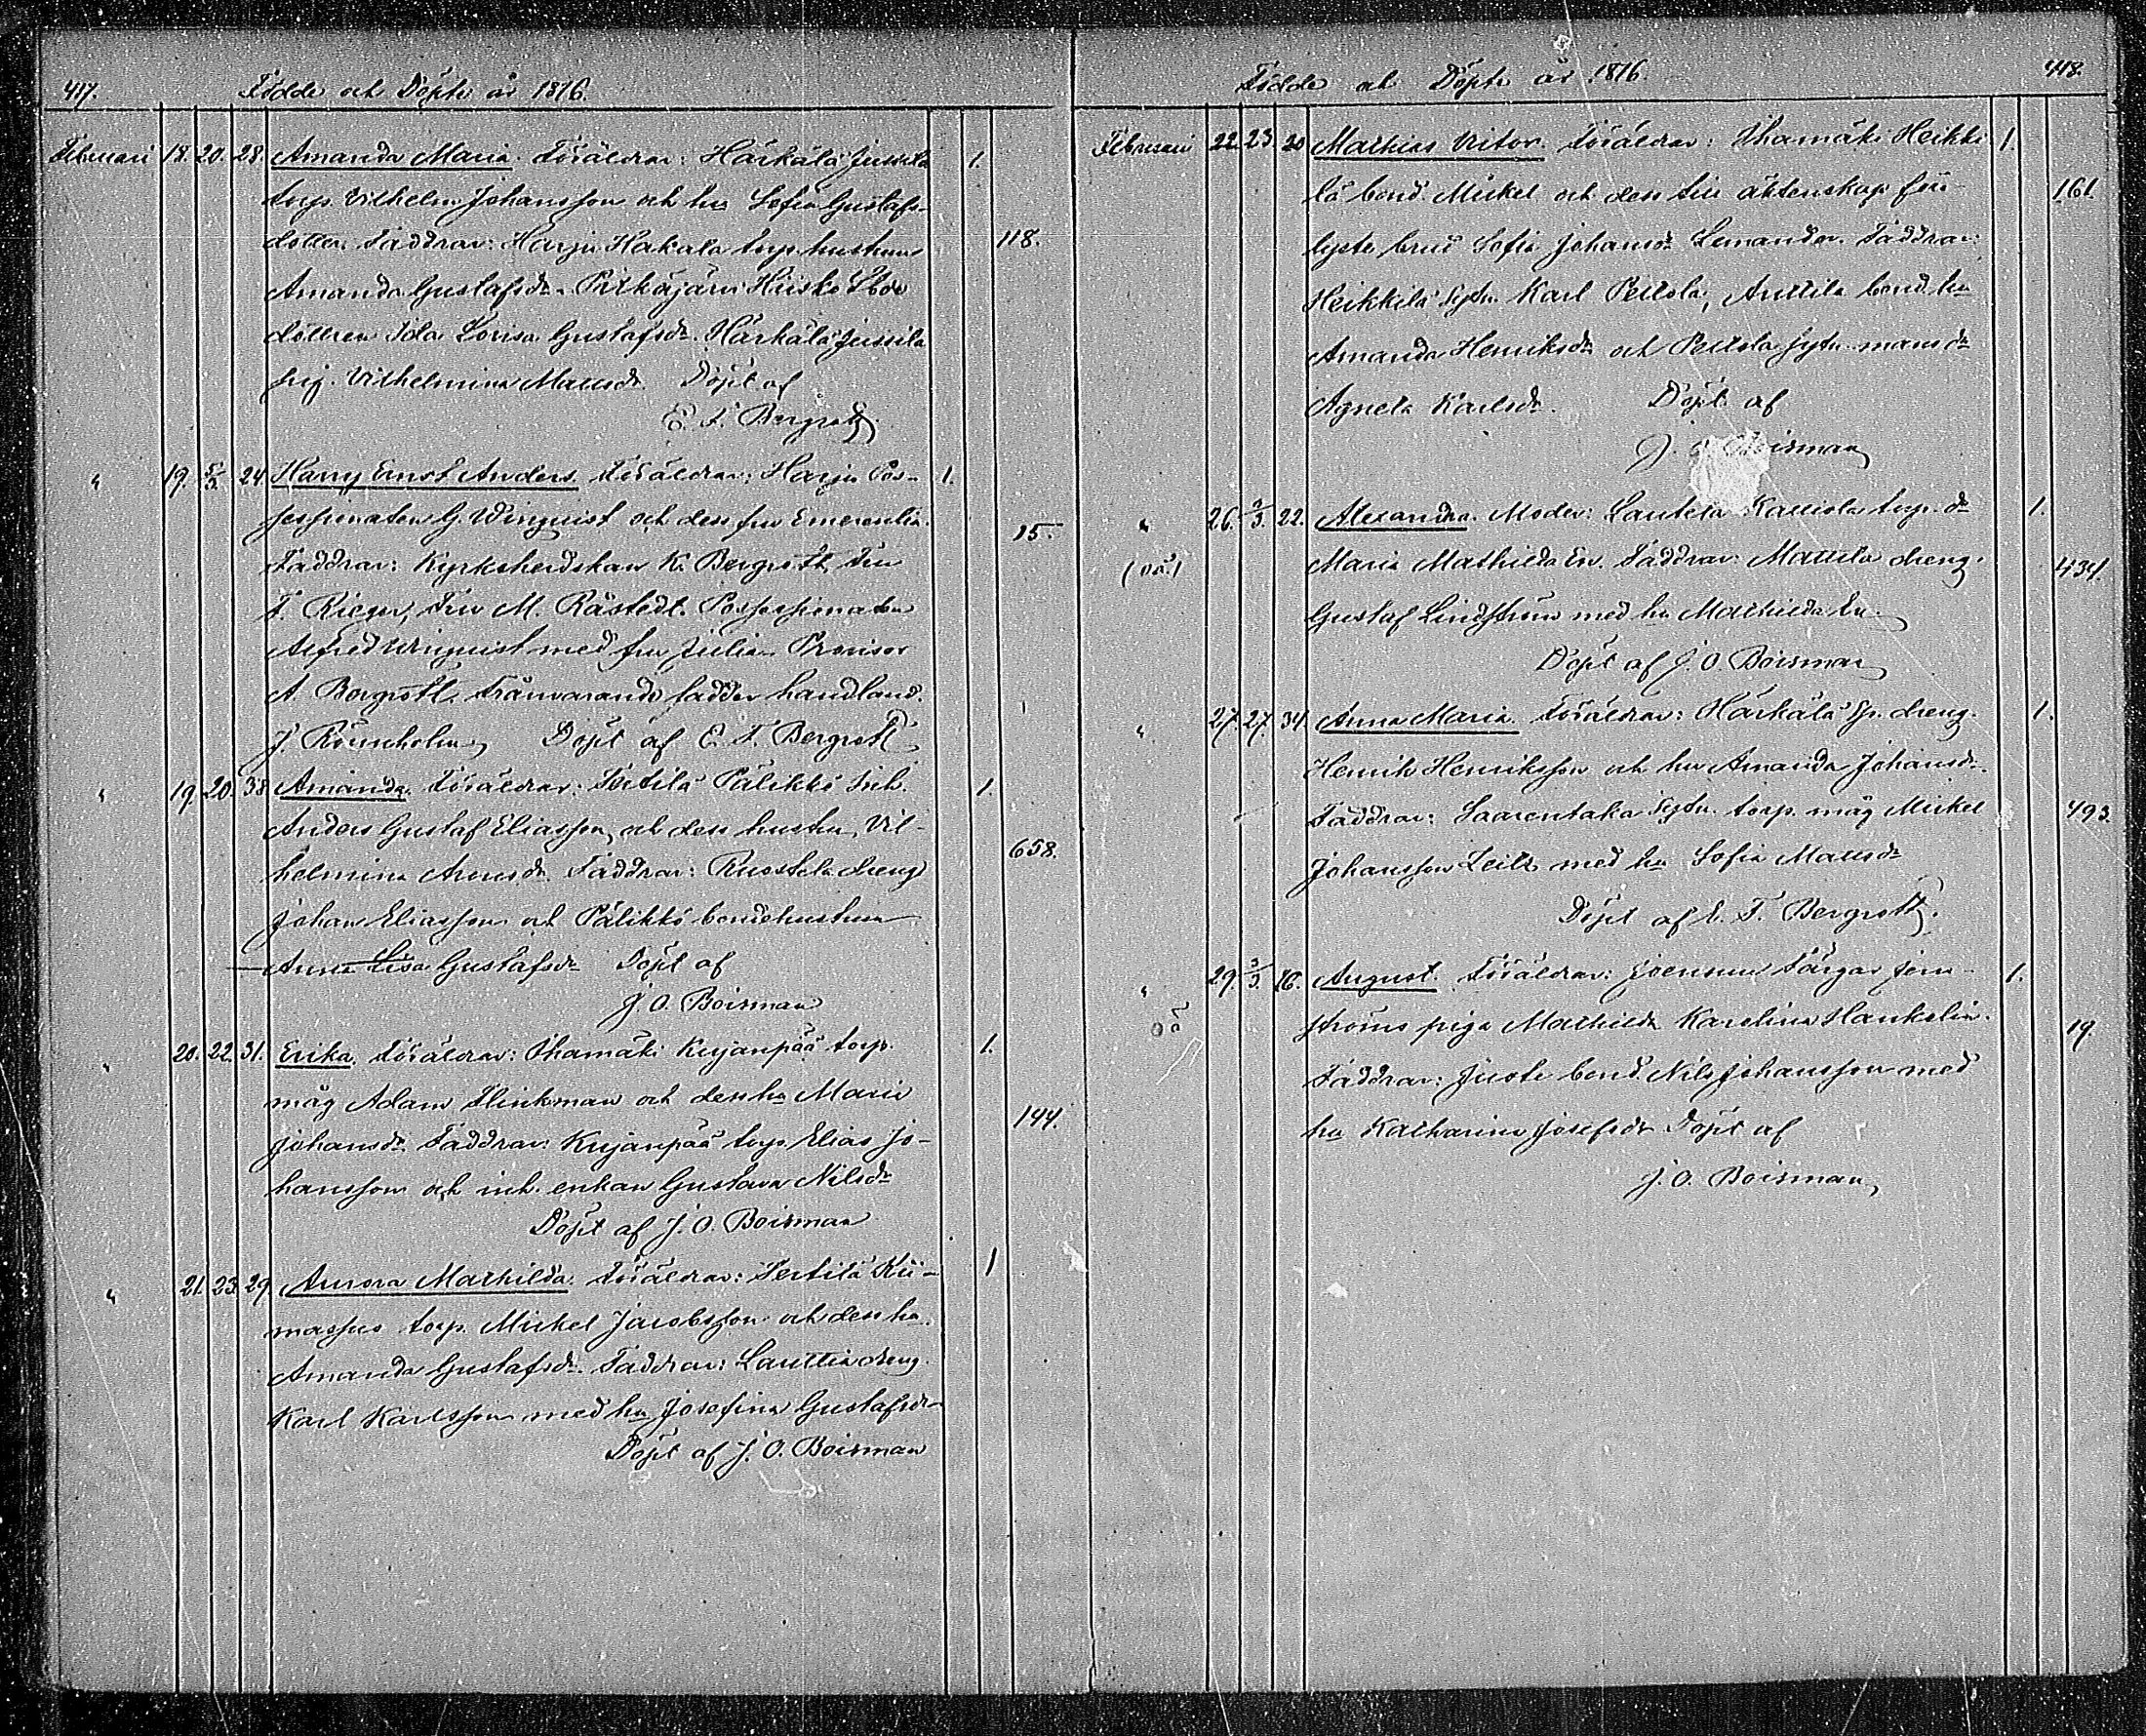 417.
Födde och Döpte år 1876.
Februari 18. 20. 28. Amanda Maria. Föräldrar: Härkälä Jussila 1.
torp. Vilhelm Johansson och hu Sofia Gustafs-
dotter. Faddrar: Harju Hakala torp. hustrun 118.
Amanda Gustafsdr. Pitkäjärvi Heisko
dottren Ida Lovisa Gustafsdr. Härkälä Jussila
pig. Vilhelmina Mattsdr. Döpt af
E. F. Bergroth
" 19. 5/3. 24. Harry Ernst Anders. Föräldrar: Harju Pos- 1.
sessionaten G. Winquist och dess fru Emerentia. 15.
Faddrar: Kyrkoherdskan K. Bergroth, Fru
F. Rieger, Fru M. Råstedt. Possessionaten
Alfred Winquist med fru Julia. Provisor
A. Bergroth. Frånvarande fadder handland.
J. Rönnholm Döpt af E. F. Bergroth
" 19. 20. 38. Amanda. Föräldrar: Sertilä Pälikkö inh. 1.
Anders Gustaf Eliasson och dess hustru Vil- 658.
helmina Anersdr. Faddrar: Ruostela dreng
Johan Eliasson och Pälikkö bondehustrun
Anna Lisa Gustafsdr Döpt af
J. O. Boisman
" 20. 22. 31. Erika. Föräldrar: Uhamäki Kujanpää torp. 1.
måg Adam Flinkman och dess hu Maria 144.
Johansdr. Faddrar: Kujanpää torp. Elias Jo-
hansson och inh. enkan Gustava Nilsdr
Döpt af J. O. Boisman
" 21. 23. 29. Aurora Mathilda. Föräldrar: Sertilä Kii- 1
massuo torp. Mickel Jacobsson och dess hu.
Amanda Gustafsdr. Faddrar: Lauttia dreng.
Karl Karlsson med hu Josefina Gustafsdr
Döpt af J. O. Boisman
Födde och Döpte år 1876. 418.
Februari 22. 23. 20 Mathias Vitor. Föräldrar: Uhamäki Heikki- 1.
lä bond. Mickel och dess till äktenskap för- 161.
lyste brud Sofia Johansdr Lemander. Faddrar:
Heikkilä Karl Pettola, Anttila bond. hu
Amanda Henriksdr och Pettola
Agneta Karlsdr. Döpt af
J. O. Boisman
" 26. 2/3. 22. Alexandra. Moder: Lautela Kauriola torp. dr 1.
(oä) Maria Mathilda En. Faddrar: Mattila dreng. 434.
Gustaf Lindström med hu Mathilda En.
Döpt af J. O. Boisman
" 27. 27. 34. Anna Maria. Föräldrar: Härkälä dreng. 1.
Henrik Henriksson och hu Amanda Johansdr.
Faddrar: Saarentaka torp. måg Mickel 493.
Johansson Leila med hu Sofia Mattsdr
Döpt af E. F. Bergroth.
" 29. 3/3. 16. August. Föräldrar: Joensuu Färgar Jern- 1.
oä ströms piga Mathilda Karolina Hankelin. 19.
Faddrar: Juote bond. Nils Johansson med
hu Katharina Josefsdr Döpt af
J. O. Boisman